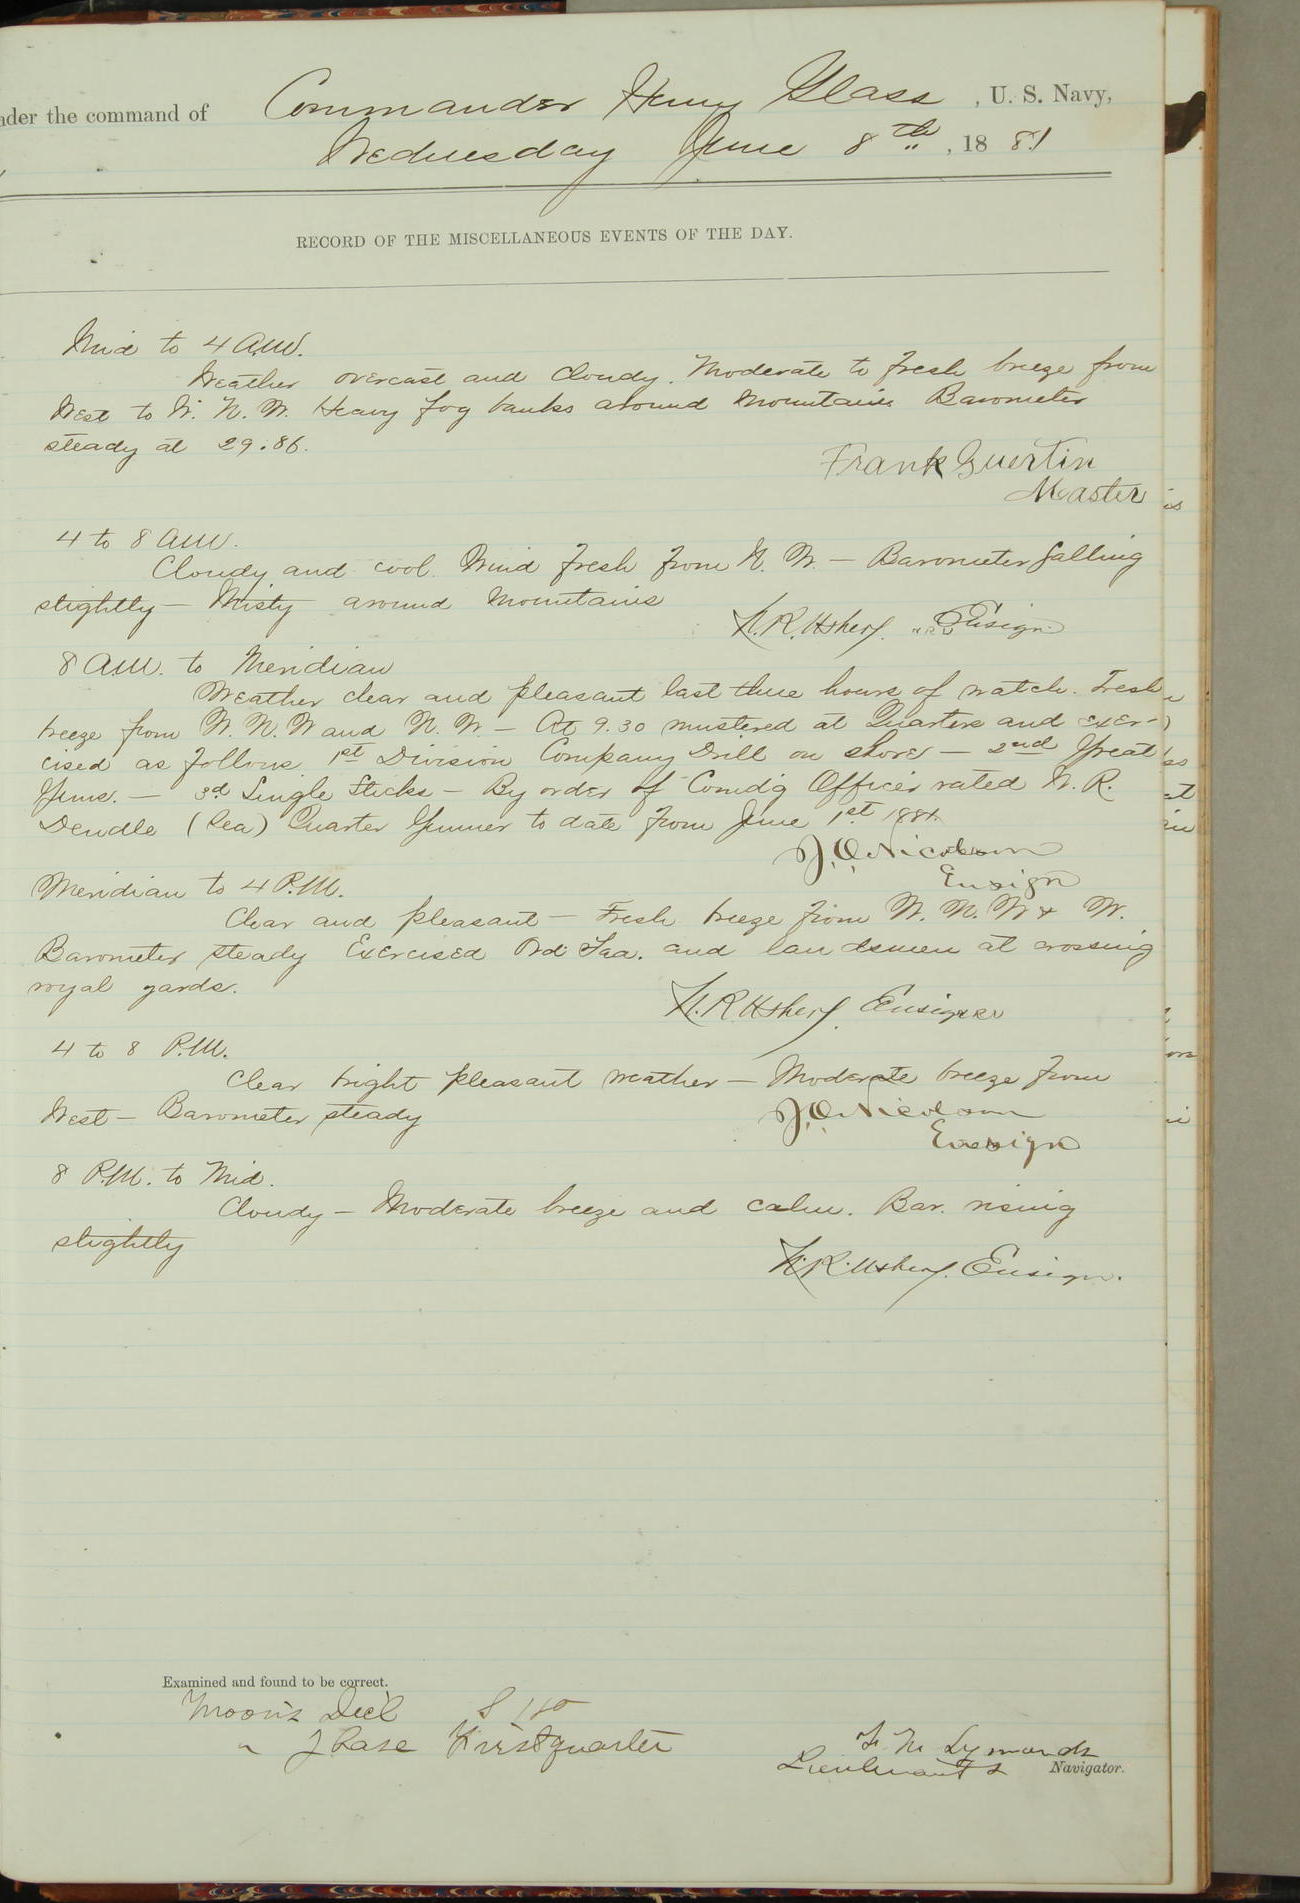 nder the command of Commander Henry Glass, U. S. Navy,
Wednesday June 8th, 1881
RECORD OF THE MISCELLANEOUS EVENTS OF THE DAY.
Mid to 4 A.M.
Weather overcast and cloudy. Moderate to fresh breeze from
West to W. N. W. Heavy fog banks around mountains Barometer
steady at 29.86.
Frank Guertin
Master
4 to 8 A.M.
Cloudy and cool. Wind fresh from N. W. — Barometer falling
slightly — Misty around mountains
N. R. Usher, Ensign
8 A.M. to Meridian
Weather clear and pleasant last three hours of watch. Fresh
breeze from W. N. W and N. W. — At 9.30 mustered at Quarters and exer-
cised as follows 1st Division Company Drill on shore — 2nd Great
Guns. — 3d Single Sticks — By order of Comd'g Officer rated W. R.
Dendle (Sea) Quarter Gunner to date from June 1st 1881.
J. O. Nicolson
Ensign
Meridian to 4 P.M.
Clear and pleasant — Fresh breeze from W. N. W & W.
Barometer steady Exercised Ord. Sea. and landsmen at crossing
royal yards.
N. R. Usher, Ensign
4 to 8 P.M.
Clear bright pleasant weather — Moderate breeze from
West — Barometer steady
J. O. Nicolson
Ensign
8 P.M. to Mid.
Cloudy — Moderate breeze and calm. Bar. rising
slightly
N. R. Usher, Ensign.
Examined and found to be correct.
Moon's Decl S
" Phase First quarter
Lieutenant & Navigator.